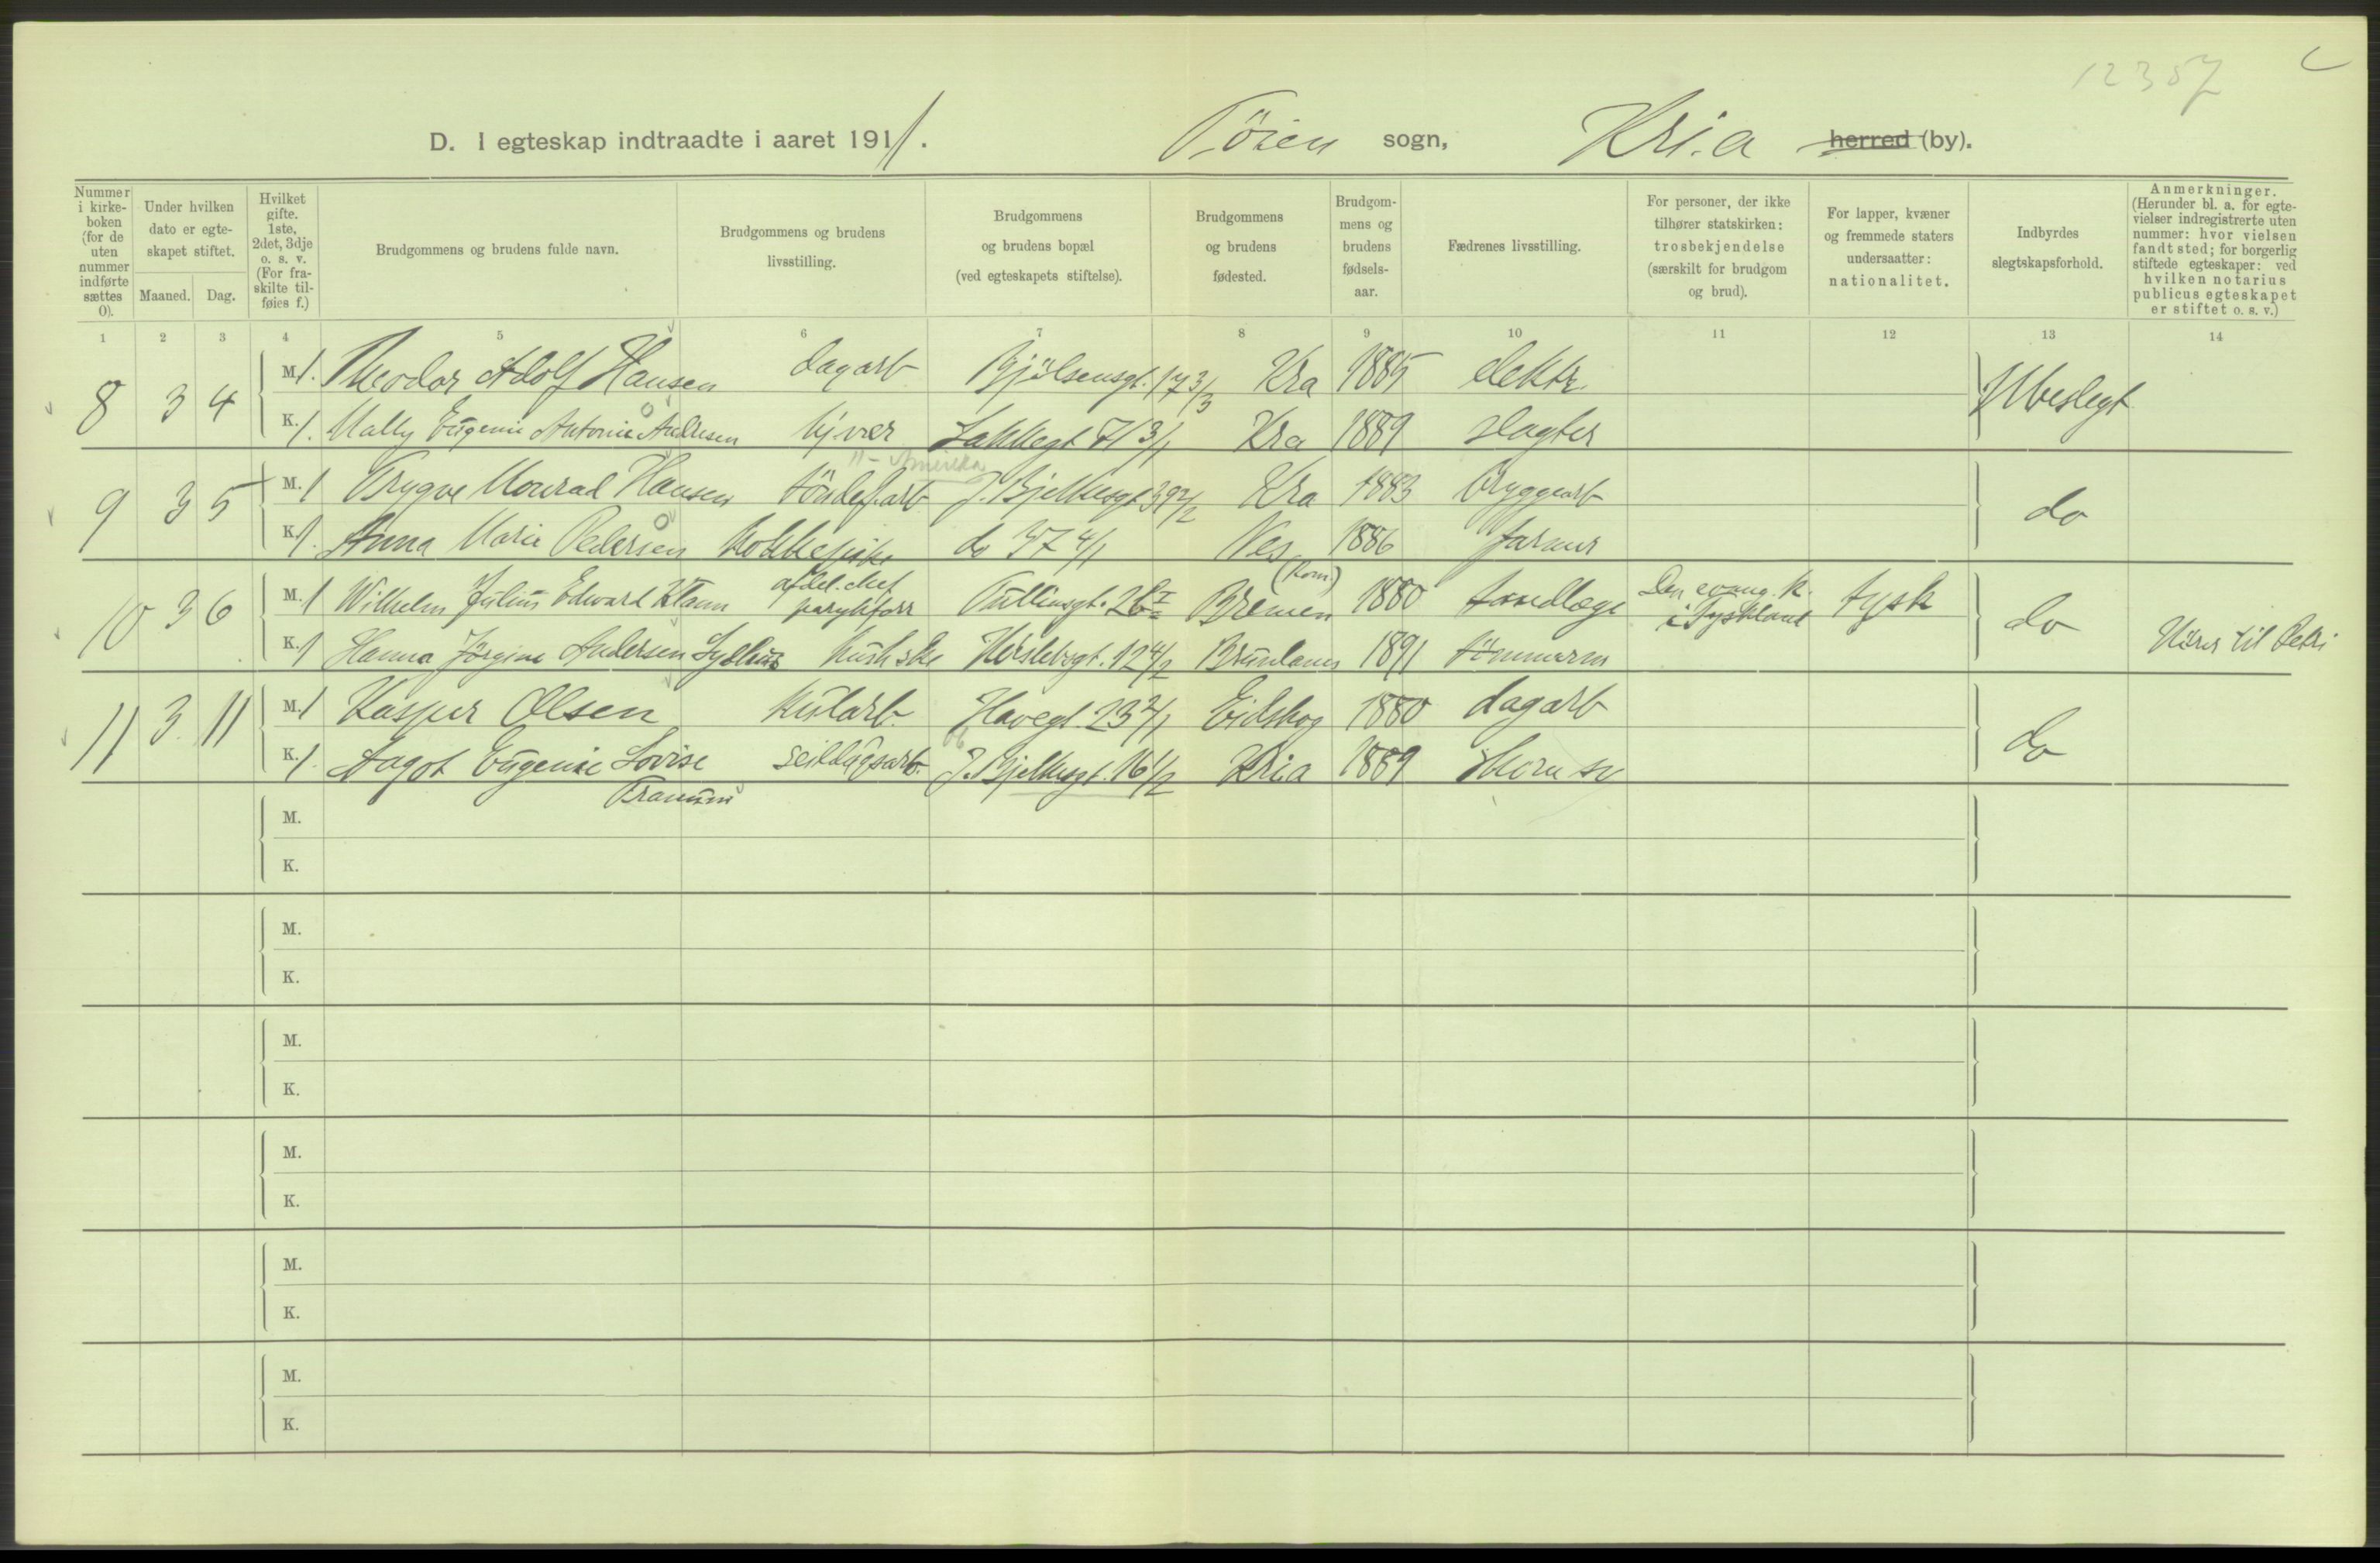 12357
D. I egteskap indtraadte i aaret 1911. Tøien sogn, Kria herred (by).
Nummer i kirkeboken (for de uten nummer indførte sættes 0).
Under hvilken dato er egteskapet stiftet.
Maaned. Dag.
Hvilket gifte. 1ste, 2det, 3dje o. s. v. (For fraskilte tilføies f.)
Brudgommens og brudens fulde navn.
Brudgommens og brudens livsstilling.
Brudgommens og brudens bopæl (ved egteskapets stiftelse).
Brudgommens og brudens fødested.
Brudgommens og brudens fødselsaar.
Fædrenes livsstilling.
For personer, der ikke tilhører statskirken: trosbekjendelse (særskilt for brudgom og brud).
For lapper, kvæner og fremmede staters undersaatter: nationalitet.
Indbyrdes slegtskapsforhold.
Anmerkninger. (Herunder bl. a. for egtevielser indregistrerte uten nummer: hvor vielsen fandt sted; for borgerlig stiftede egteskaper: ved hvilken notarius publicus egteskapet er stiftet o. s. v.)
1 2 3 4 5 6 7 8 9 10 11 12 13 14
8 3 4 M. 1. Theodor Adolf Hansen dagarb Bjølsensgt. 17 3/3 Kra 1885 elektr. Ubeslegt
K. 1. Mally Eugenie Antonie Andresen hj vær Lakkegt 71 3/1 Kra 1889 slagter
Amerika
9 3 5 M. 1 Trygve Monrad Hansen tøndefarb J. Bjelkesgt 39 2/2 Kra 1883 bryggearb do
K. 1. Anna Marie Pedersen Kokkepike do 37 4/1 Nes 1886 farmer
(Rom.)
10 3 6 M. 1 Wilhelm Julius Edward Klann afdel. chef parykforr Tullinsgt. 26 I Bremen 1880 tandlæge Den evang. k. i Tyskland tysk do Hører til Petri
K. 1 Hanna Jørgine Andersen Sydhus hush ske Herslebsgt. 12 4/2 Brunlanes 1891 tømmerm
11 3 11 M. 1 Kasper Olsen Kularb. Havegt. 23 2/1 Eidskog 1880 dagarb do
K. 1. Aagot Eugenie Lovise seildugsarb. J. Bjelkesgt. 16 1/2 Kria 1889 Skom sv
Tranum
M.
K.
M.
K.
M.
K.
M.
K.
M.
K.
M.
K.